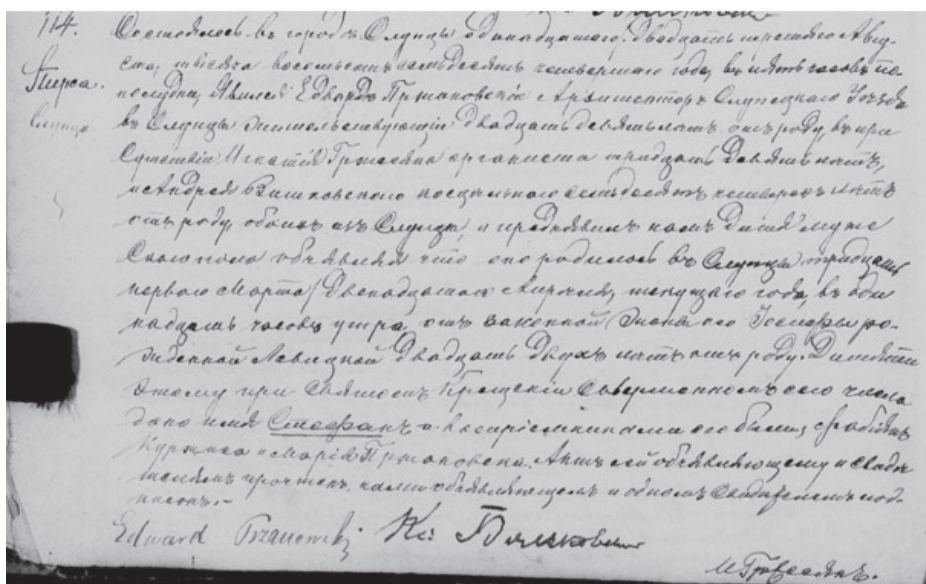 114.
Слупца.
Состоялось въ городѣ Слупцы одинадцатаго /двадцать третьяго Авгу-
ста, тысяча восемьсотъ семьдесятъ четвертаго года, въ пять часовъ по-
полудни, Явился Едвардъ Пржановскій Архитекторъ Слупецкаго Уѣзда
въ Слупцы жительствующій двадцать девять лѣтъ отъ роду, въ при
сутствіи Игнатія органиста тридцать девять лѣтъ,
и Андрея семьдесятъ лѣтъ
отъ роду, обоихъ изъ Слупцы, и предъявилъ намъ Дитя муже
скаго пола объявляя что оно родилось въ Слупцы тридцать
перваго Марта /Двенадцатаго Апрѣля, текущаго года, въ оди
надцать часовъ утра, отъ законной жены его Іосефы ро-
жденной Левицкой двадцать двухъ лѣтъ отъ роду. Дитяти
этому при Святомъ Крещеніи Совершенномъ сего числа
дано имя Стефанъ а воспріемниками его были,
и Марія Пржановска. Актъ сей объявляющему и Свидѣ
телямъ прочтенъ, нами объявляющимъ и однимъ Свидѣтелемъ под-
писанъ.-
Edward Przanowski Кс: